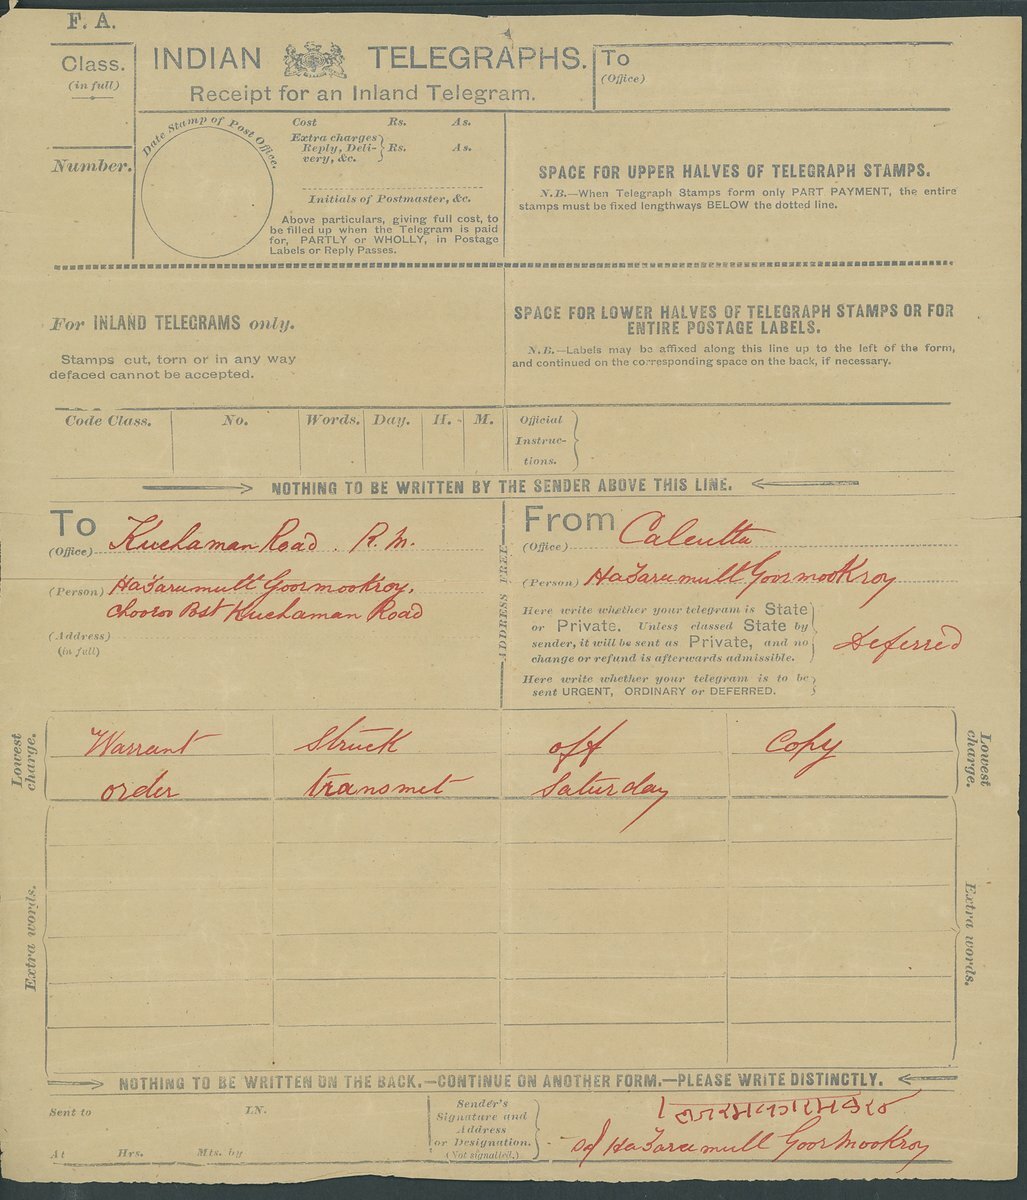 F. A.
Class.
(in full)
INDIAN TELEGRAPHS.
Receipt for an Inland Telegram.
To
(Office)
Number.
Date Stamp of Post Office.
Cost Rs. As.
Extra charges
Reply, Deli- Rs. As.
very, &c.
Initials of Postmaster, &c.
Above particulars, giving full cost, to
be filled up when the Telegram is paid
for, PARTLY or WHOLLY, in Postage
Labels or Reply Passes.
SPACE FOR UPPER HALVES OF TELEGRAPH STAMPS.
N.B.—When Telegraph Stamps form only PART PAYMENT, the entire
stamps must be fixed lengthways BELOW the dotted line.
For INLAND TELEGRAMS only.
Stamps cut, torn or in any way
defaced cannot be accepted.
SPACE FOR LOWER HALVES OF TELEGRAPH STAMPS OR FOR
ENTIRE POSTAGE LABELS.
N.B.—Labels may be affixed along this line up to the left of the form,
and continued on the corresponding space on the back, if necessary.
Code Class. No. Words. Day. H. M.
Official
Instruc-
tions.
NOTHING TO BE WRITTEN BY THE SENDER ABOVE THIS LINE.
To
(Office) Kuchaman Road. R. M.
(Person) Hazarumull Goormookroy,
Chooroo Post Kuchaman Road
(Address)
(in full)
ADDRESS FREE
From
(Office) Calcutta
(Person) Hazarumull Goormookroy
Here write whether your telegram is State
or Private. Unless classed State by
sender, it will be sent as Private, and no
change or refund is afterwards admissible.
Here write whether your telegram is to be
sent URGENT, ORDINARY or DEFERRED.
Deferred
Lowest
charge.
Warrant Struck off Copy
order transmet Saturday
Lowest
charge.
Extra words.
Extra words.
NOTHING TO BE WRITTEN ON THE BACK.—CONTINUE ON ANOTHER FORM.—PLEASE WRITE DISTINCTLY.
Sent to IN.
At Hrs. Mts. by
Sender's
Signature and
Address
or Designation.
(Not signalled.)
sd/ Hazarumull Goormookroy